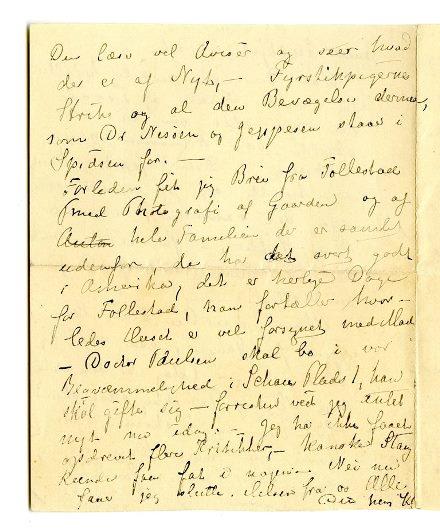 Du læser vel Aviser og seer hvad
der er af Nyt, — Fyrstikpigernes
Strike og al den Bevægelse derved,
som Dr Nissen og Jeppesen staar i
Spidsen for. —
Forleden fik jeg Brev fra Follestad
med Photografi af Gaarden og af
hele Familien der er samlet
udenfor, de har det svært godt
i Amerika, det er herlige Dage
for Follestad, han fortæller hvor-
ledes Huset er vel forsynet med Mad
— Doctor Paulsen skal bo i vor
Beqvæmmelighed i Schous Plads 1, han
skal gifte sig — forresten ved jeg intet
nyt nu idag. — Jeg har ikke faaet
opdrevet flere —, Kanske Stang
kunde faa fat i nogen. Nei nu
faar jeg slutte. Hilsen fra os Alle
Din hen